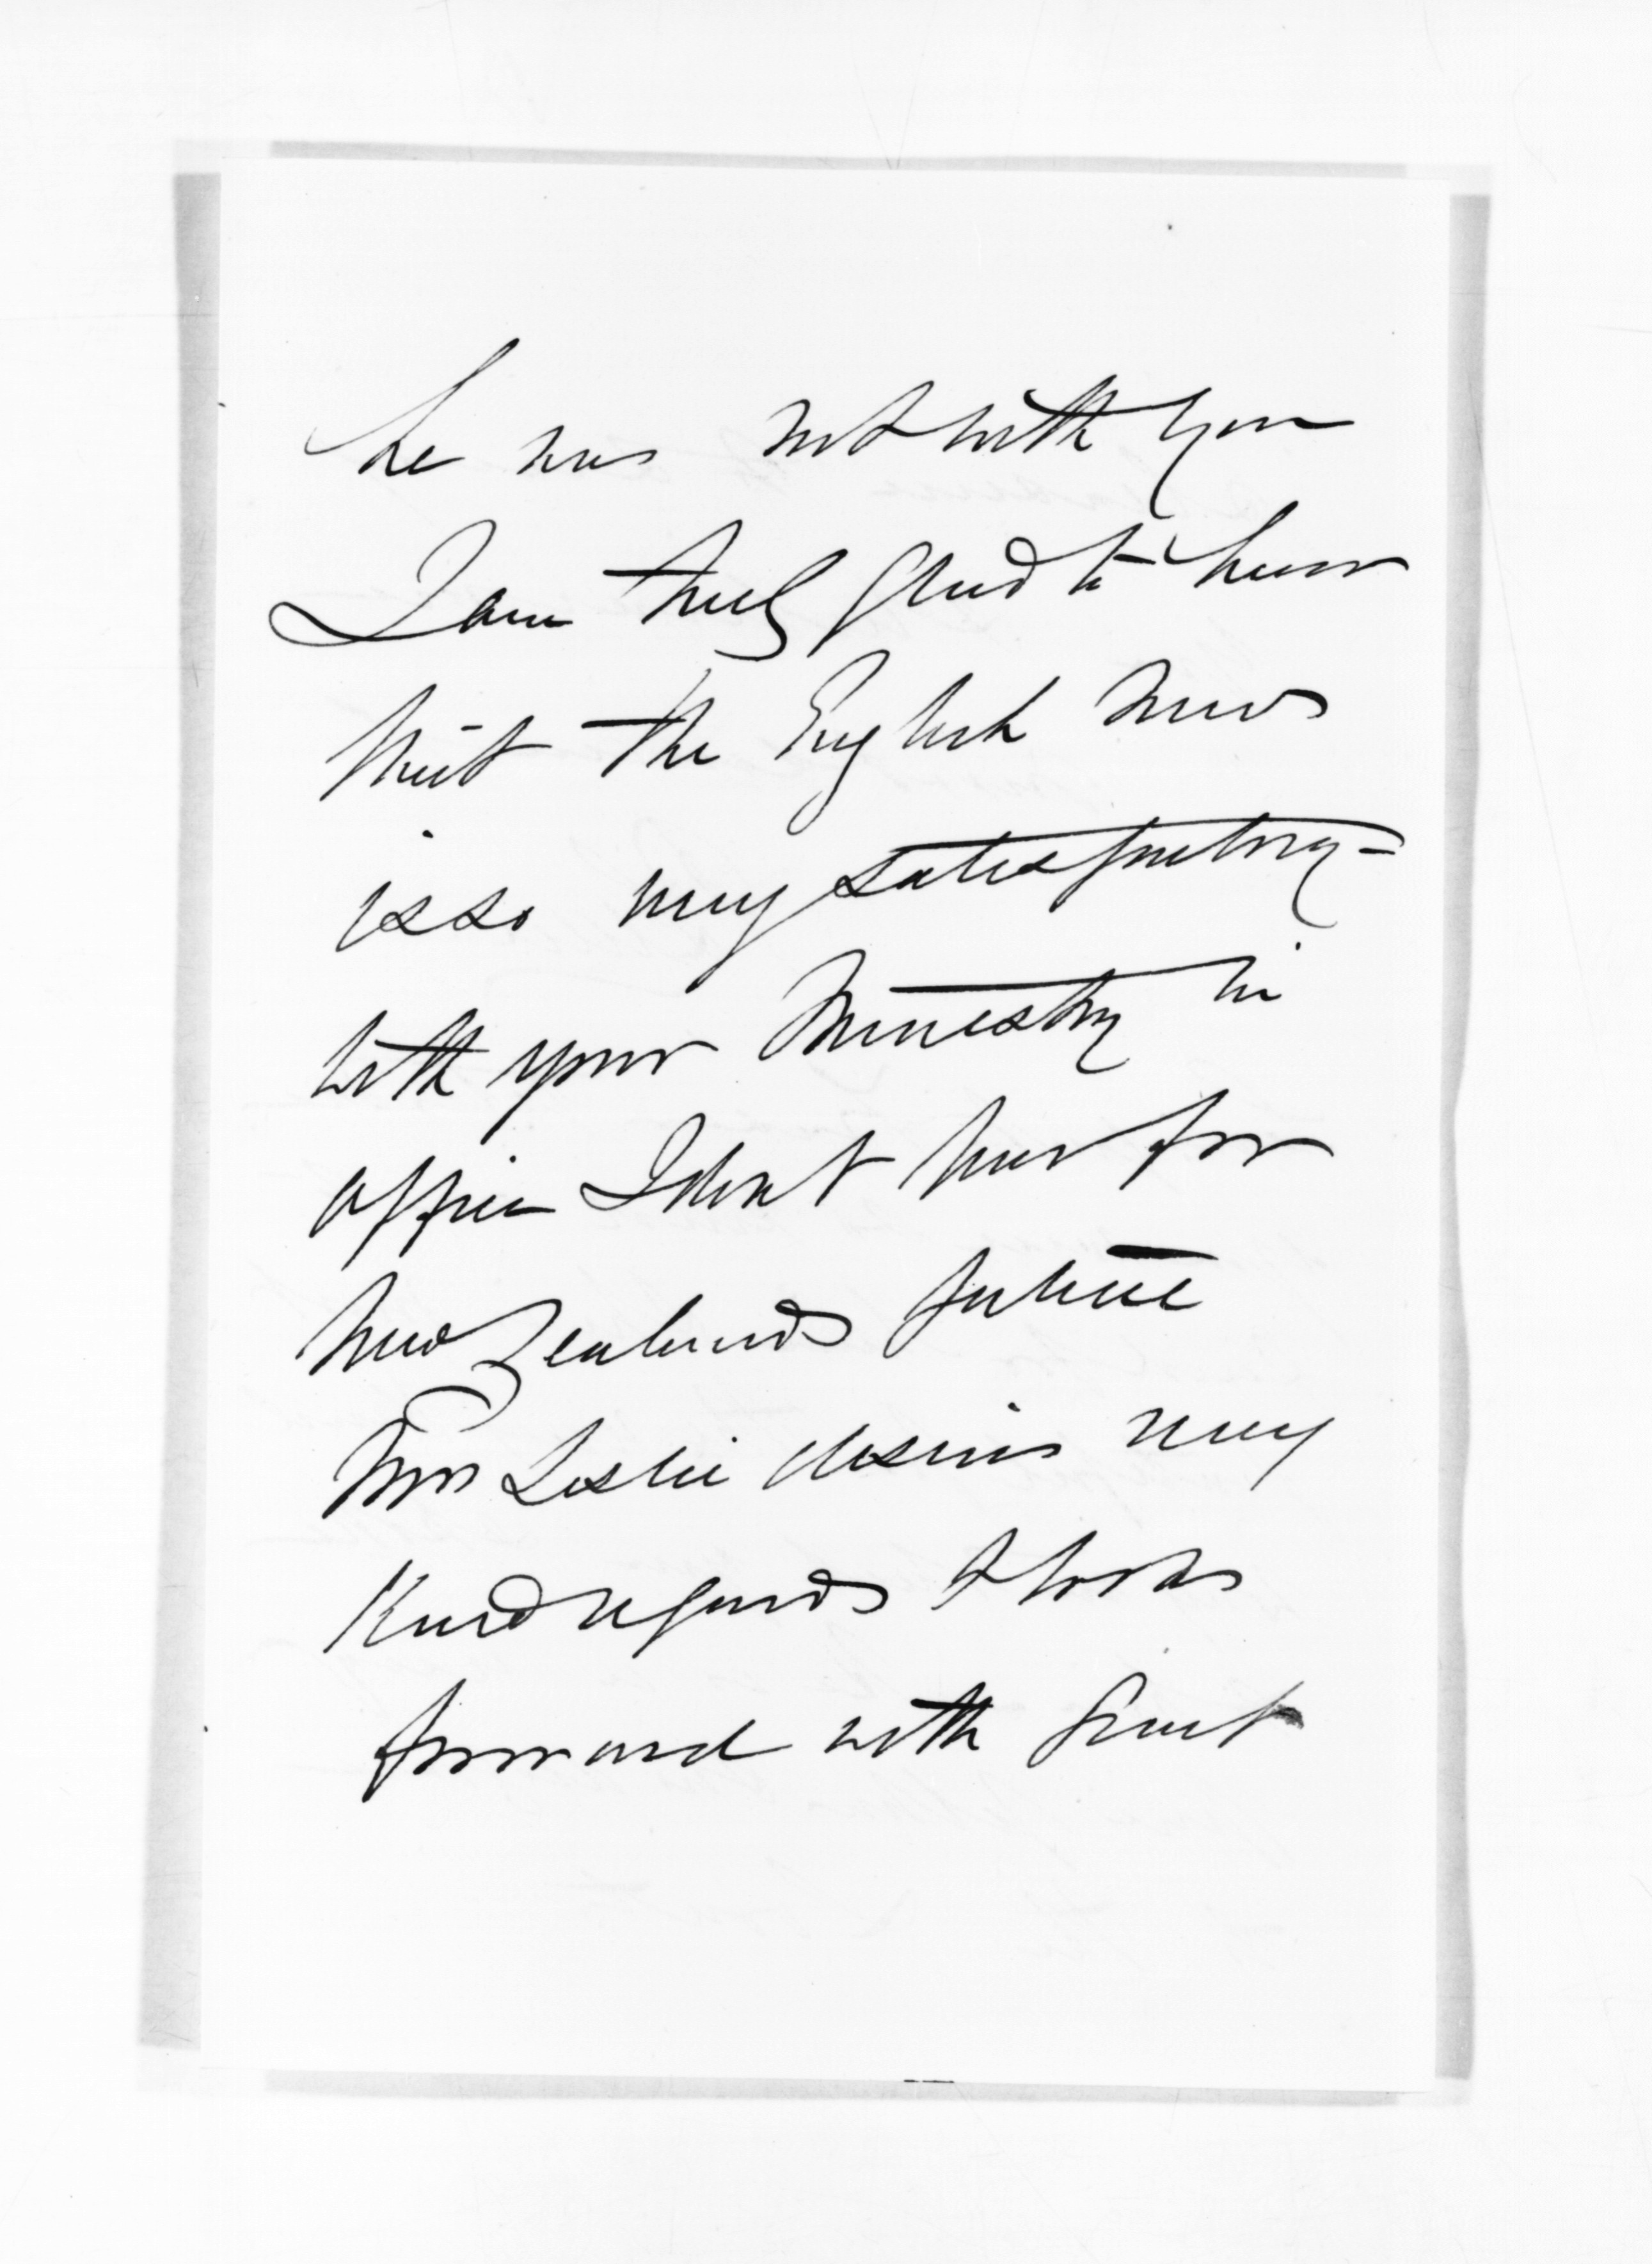 he was not with you
I am truly glad to hear
that the English news
is so very satisfactory -
with your Ministry in
office I dont fear for
New Zealands future
Mrs Leslie desires very
Kind regards & looks
forward with great